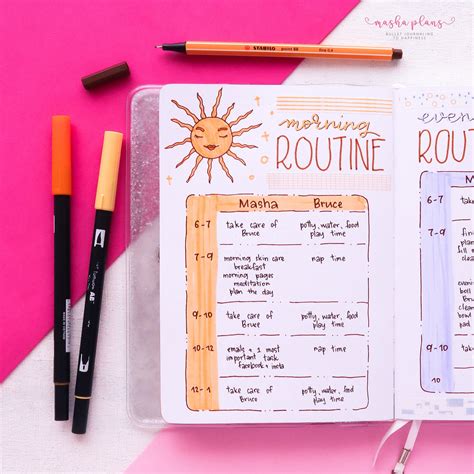 masha plans
BULLET JOURNALING
TO HAPPINESS
STABILO point 88 fine 0.4
morning
ROUTINE
Masha Bruce
6-7 take care of Bruce potty, water, food play time
7-9 morning skin care breakfast morning pages meditation plan the day nap time
9-10 take care of Bruce potty, water, food play time
10-12 emails + 1 most important task facebook & insta nap time
12-1 take care of Bruce potty, water, food play time
even
ROU
6-7
7-9
9-10